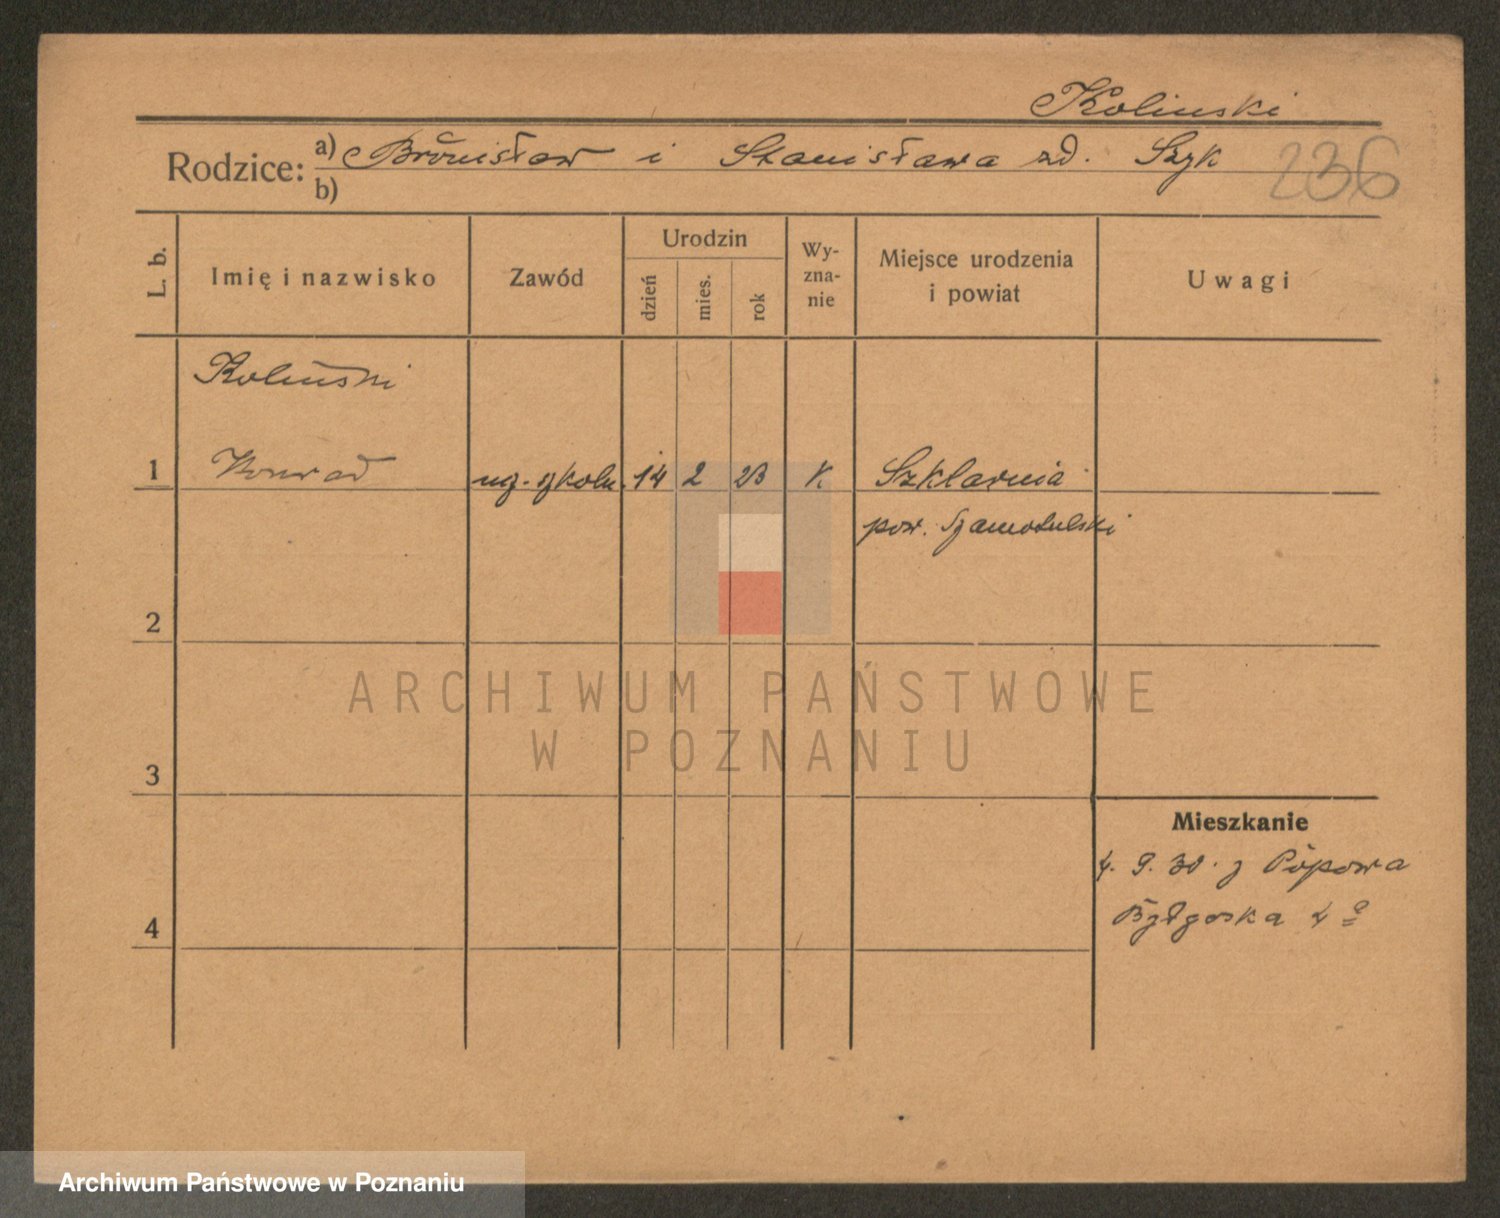 Kolinski
Rodzice: a) Bronisław i Stanisława zd. Szyk
b)
236
L. b.
Imię i nazwisko
Zawód
Urodzin
dzień
mies.
rok
Wy-
zna-
nie
Miejsce urodzenia
i powiat
Uwagi
Koliński
1 Konrad ucz. szkoln. 14 2 23 K Szklarnia
pow. Szamotulski
2
ARCHIWUM PAŃSTWOWE
W POZNANIU
3
Mieszkanie
4. 9. 30. z Popowa
4
Bydgoska 4a
Archiwum Państwowe w Poznaniu